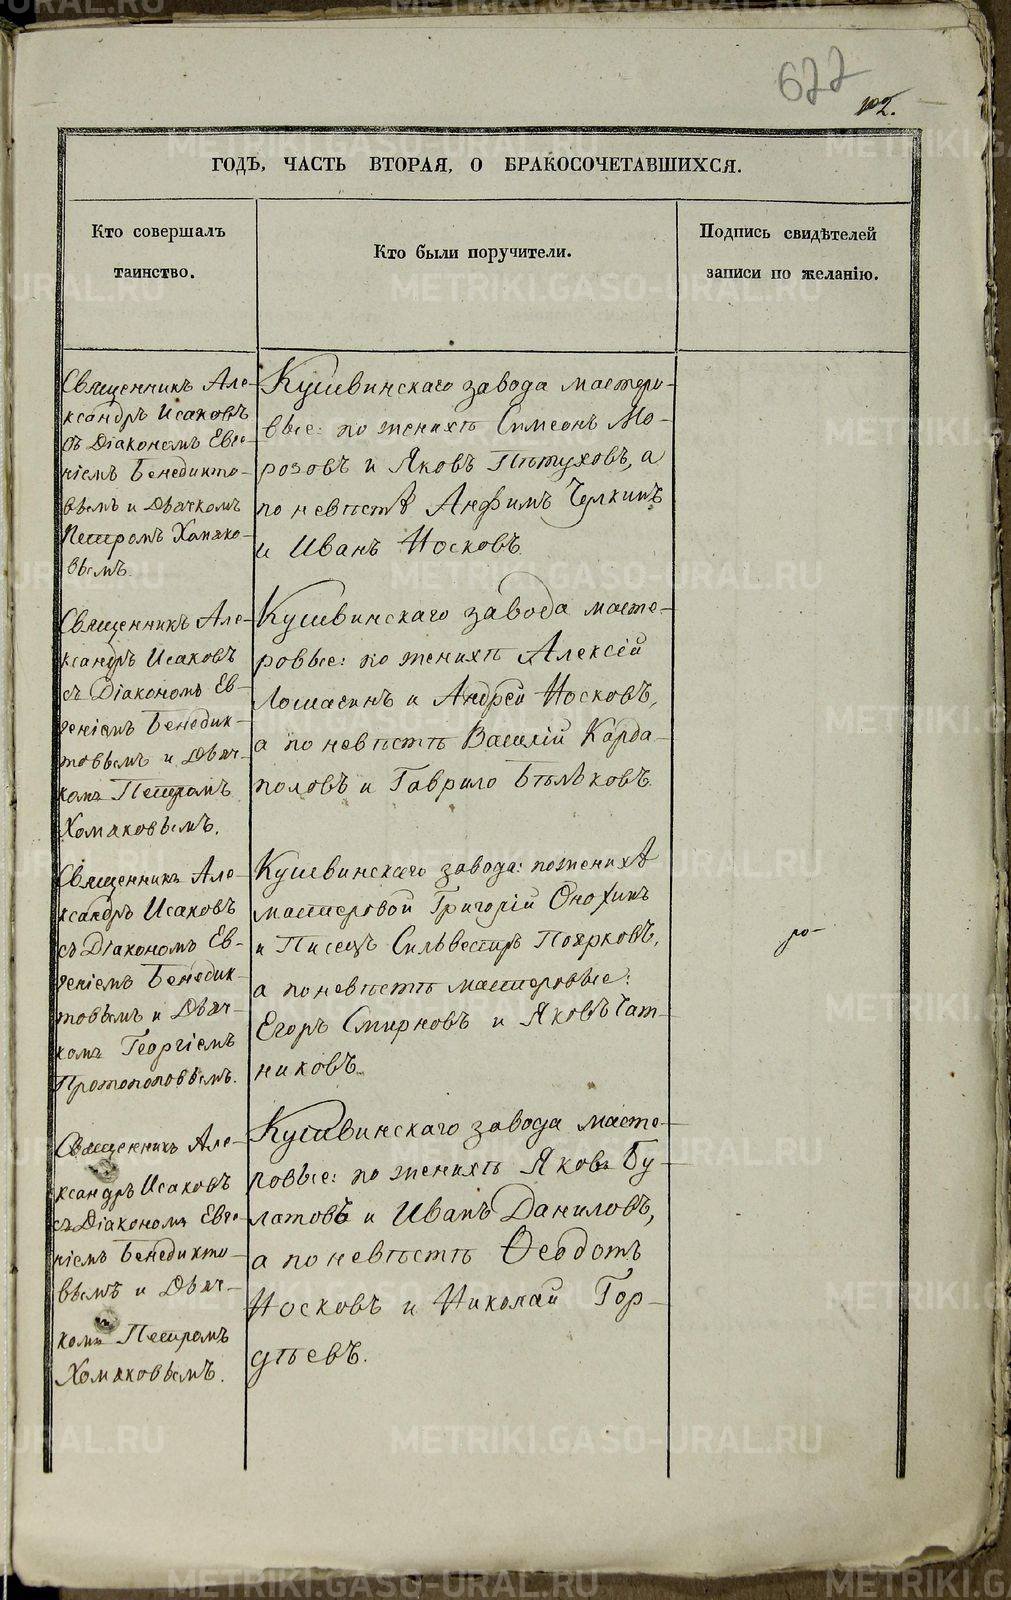 622
102.
ГОДЪ, ЧАСТЬ ВТОРАЯ, О БРАКОСОЧЕТАВШИХСЯ.
Кто совершалъ
таинство.
Кто были поручители.
Подпись свидѣтелей
записи по желанію.
Священникъ Але-
ксандръ Исаковъ
съ Діакономъ Евге-
ніемъ Бенедикто-
вымъ и Дьячкомъ
Петромъ Хомяко-
вымъ.
Кушвинскаго завода мастеро-
вые: по женихѣ Симеонъ Мо-
розовъ и Яковъ Пѣтуховъ, а
по невѣстѣ Анфимъ Чулкинъ
и Иванъ Носковъ.
Священникъ Але-
ксандръ Исаковъ
съ Діакономъ Ев-
геніемъ Бенедик-
товымъ и Дьяч-
комъ Петромъ
Хомяковымъ.
Кушвинскаго завода масте-
ровые: по женихѣ Алексій
Лошагинъ и Андрей Носковъ,
а по невѣстѣ Василій Карда-
половъ и Гаврило Бѣльковъ.
Священникъ Але-
ксандръ Исаковъ
съ Діакономъ Ев-
геніемъ Бенедик-
товымъ и Дьяч-
комъ Георгіемъ
Протопоповымъ.
Кушвинскаго завода: по женихѣ
мастеровой Григорій Онохинъ
и Писецъ Сильвестръ Поярковъ,
а по невѣстѣ мастеровые:
Егоръ Смирновъ и Яковъ Чат-
никовъ.
ро-
Священникъ Але-
ксандръ Исаковъ
съ Діакономъ Евге-
ніемъ Бенедикто-
вымъ и Дьяч-
комъ Петромъ
Хомяковымъ.
Кушвинскаго завода масте-
ровые: по женихѣ Яковъ Бу-
латовъ и Иванъ Даниловъ,
а по невѣстѣ Ѳеодотъ
Носковъ и Николай Гор-
дѣевъ.
METRIKI.GASO-URAL.RU